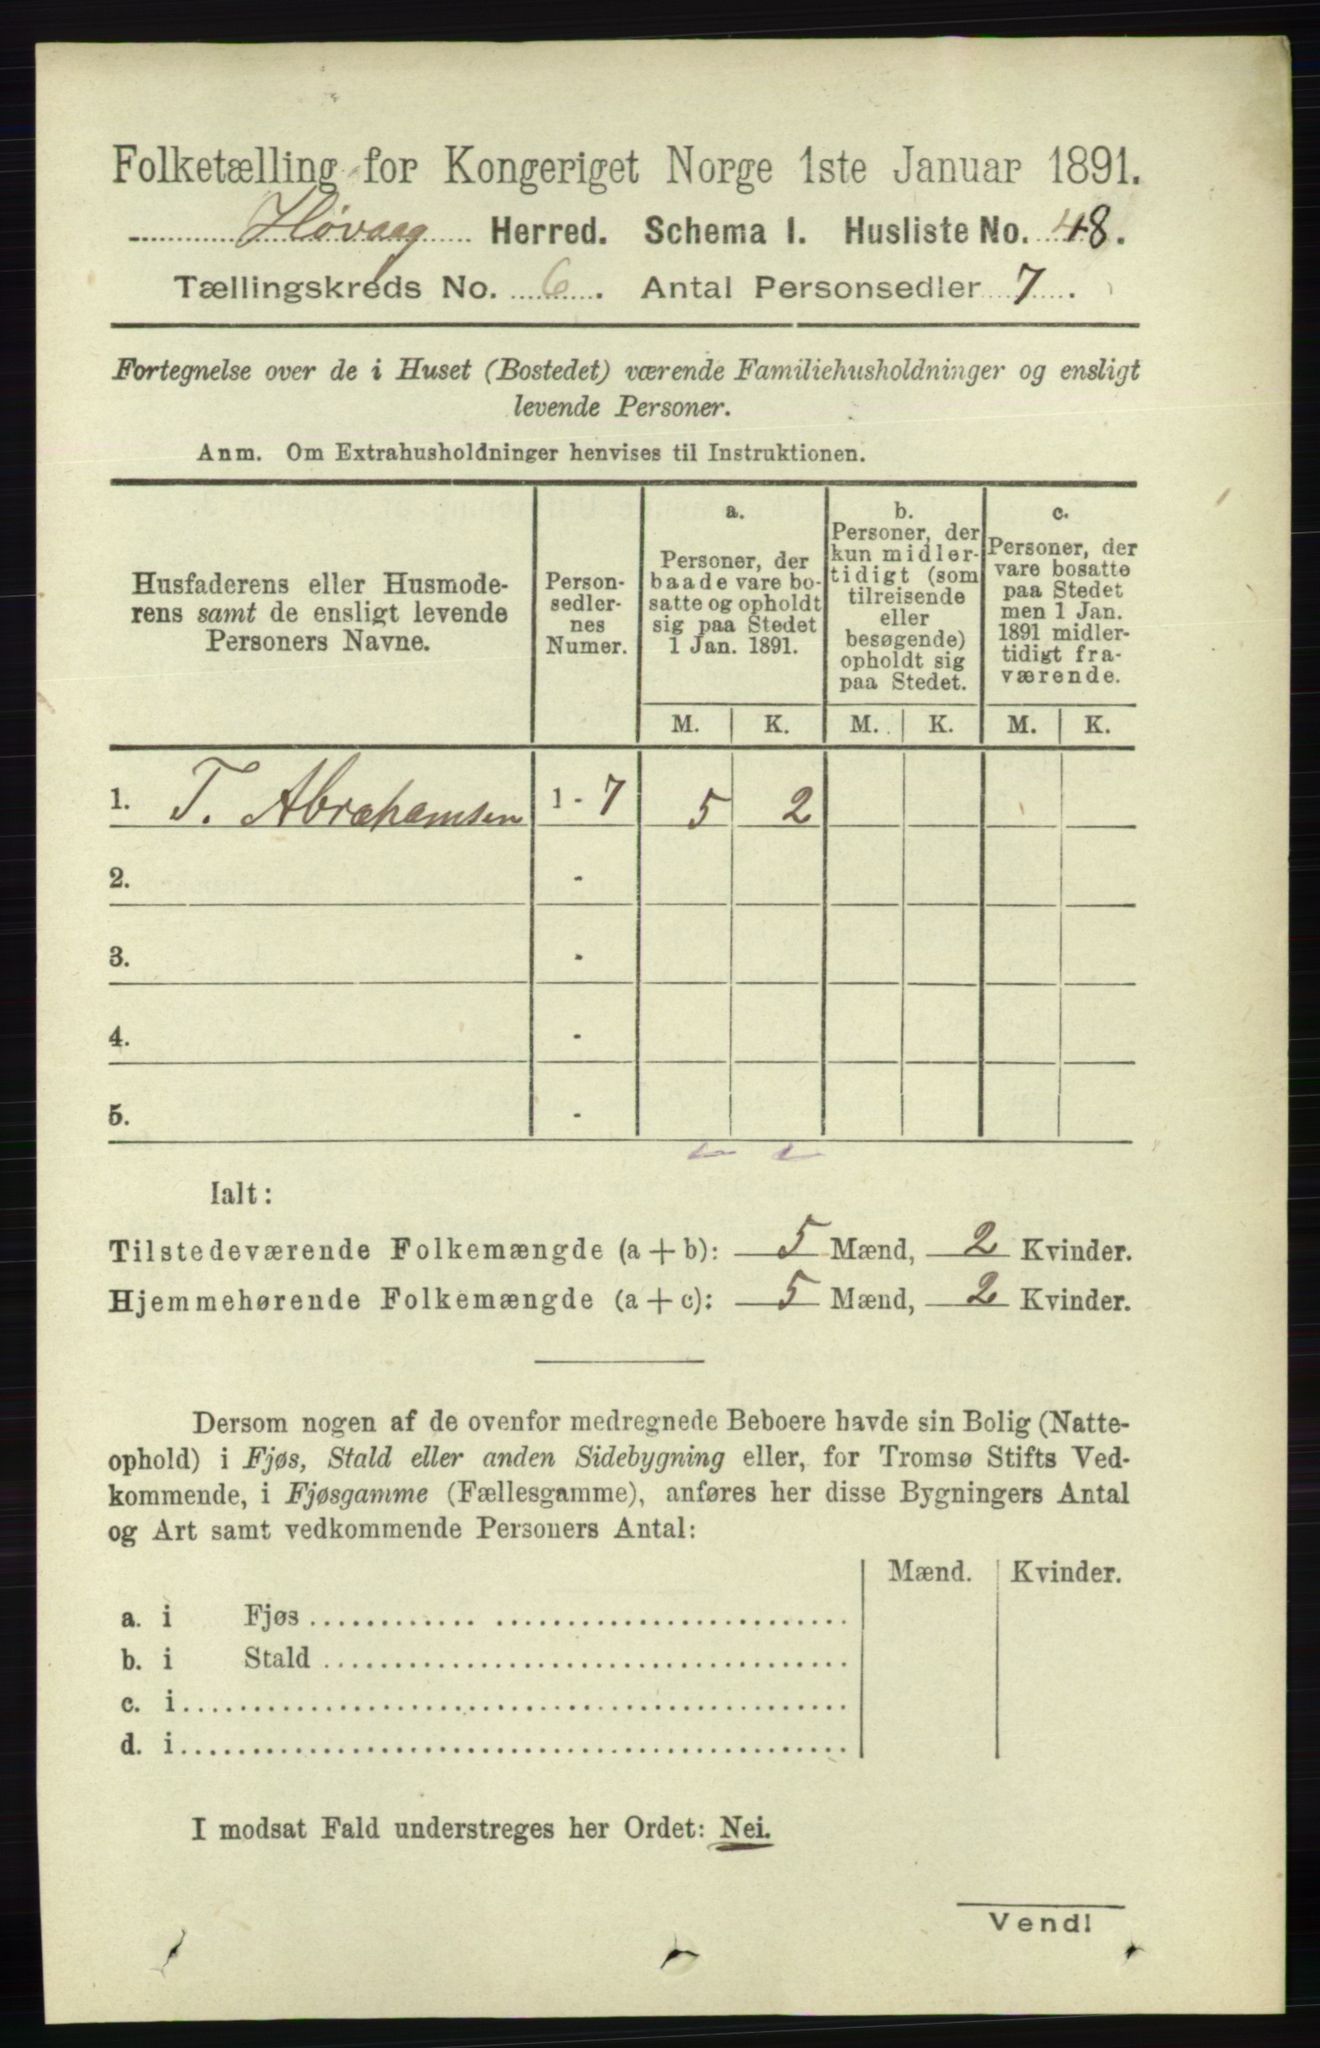 Folketælling for Kongeriget Norge 1ste Januar 1891.
Høvaag Herred. Schema I. Husliste No. 48.
Tællingskreds No. 6. Antal Personsedler 7.
Fortegnelse over de i Huset (Bostedet) værende Familiehusholdninger og ensligt
levende Personer.
Anm. Om Extrahusholdninger henvises til Instruktionen.
Husfaderens eller Husmode-
rens samt de ensligt levende
Personers Navne.
Person-
sedler-
nes
Numer.
a.
Personer, der
baade vare bo-
satte og opholdt
sig paa Stedet
1 Jan. 1891.
b.
Personer, der
kun midler-
tidigt (som
tilreisende
eller
besøgende)
opholdt sig
paa Stedet.
c.
Personer, der
vare bosatte
paa Stedet
men 1 Jan.
1891 midler-
tidigt fra-
værende.
M. K. M. K. M. K.
1. T. Abrahamsen 1 - 7 5 2
2. -
3. -
4. -
5. -
Ialt:
Tilstedeværende Folkemængde (a + b): 5 Mænd, 2 Kvinder.
Hjemmehørende Folkemængde (a + c): 5 Mænd, 2 Kvinder.
Dersom nogen af de ovenfor medregnede Beboere havde sin Bolig (Natte-
ophold) i Fjøs, Stald eller anden Sidebygning eller, for Tromsø Stifts Ved-
kommende, i Fjøsgamme (Fællesgamme), anføres her disse Bygningers Antal
og Art samt vedkommende Personers Antal:
Mænd. Kvinder.
a. i Fjøs
b. i Stald
c. i
d. i
I modsat Fald understreges her Ordet: Nei.
Vend!